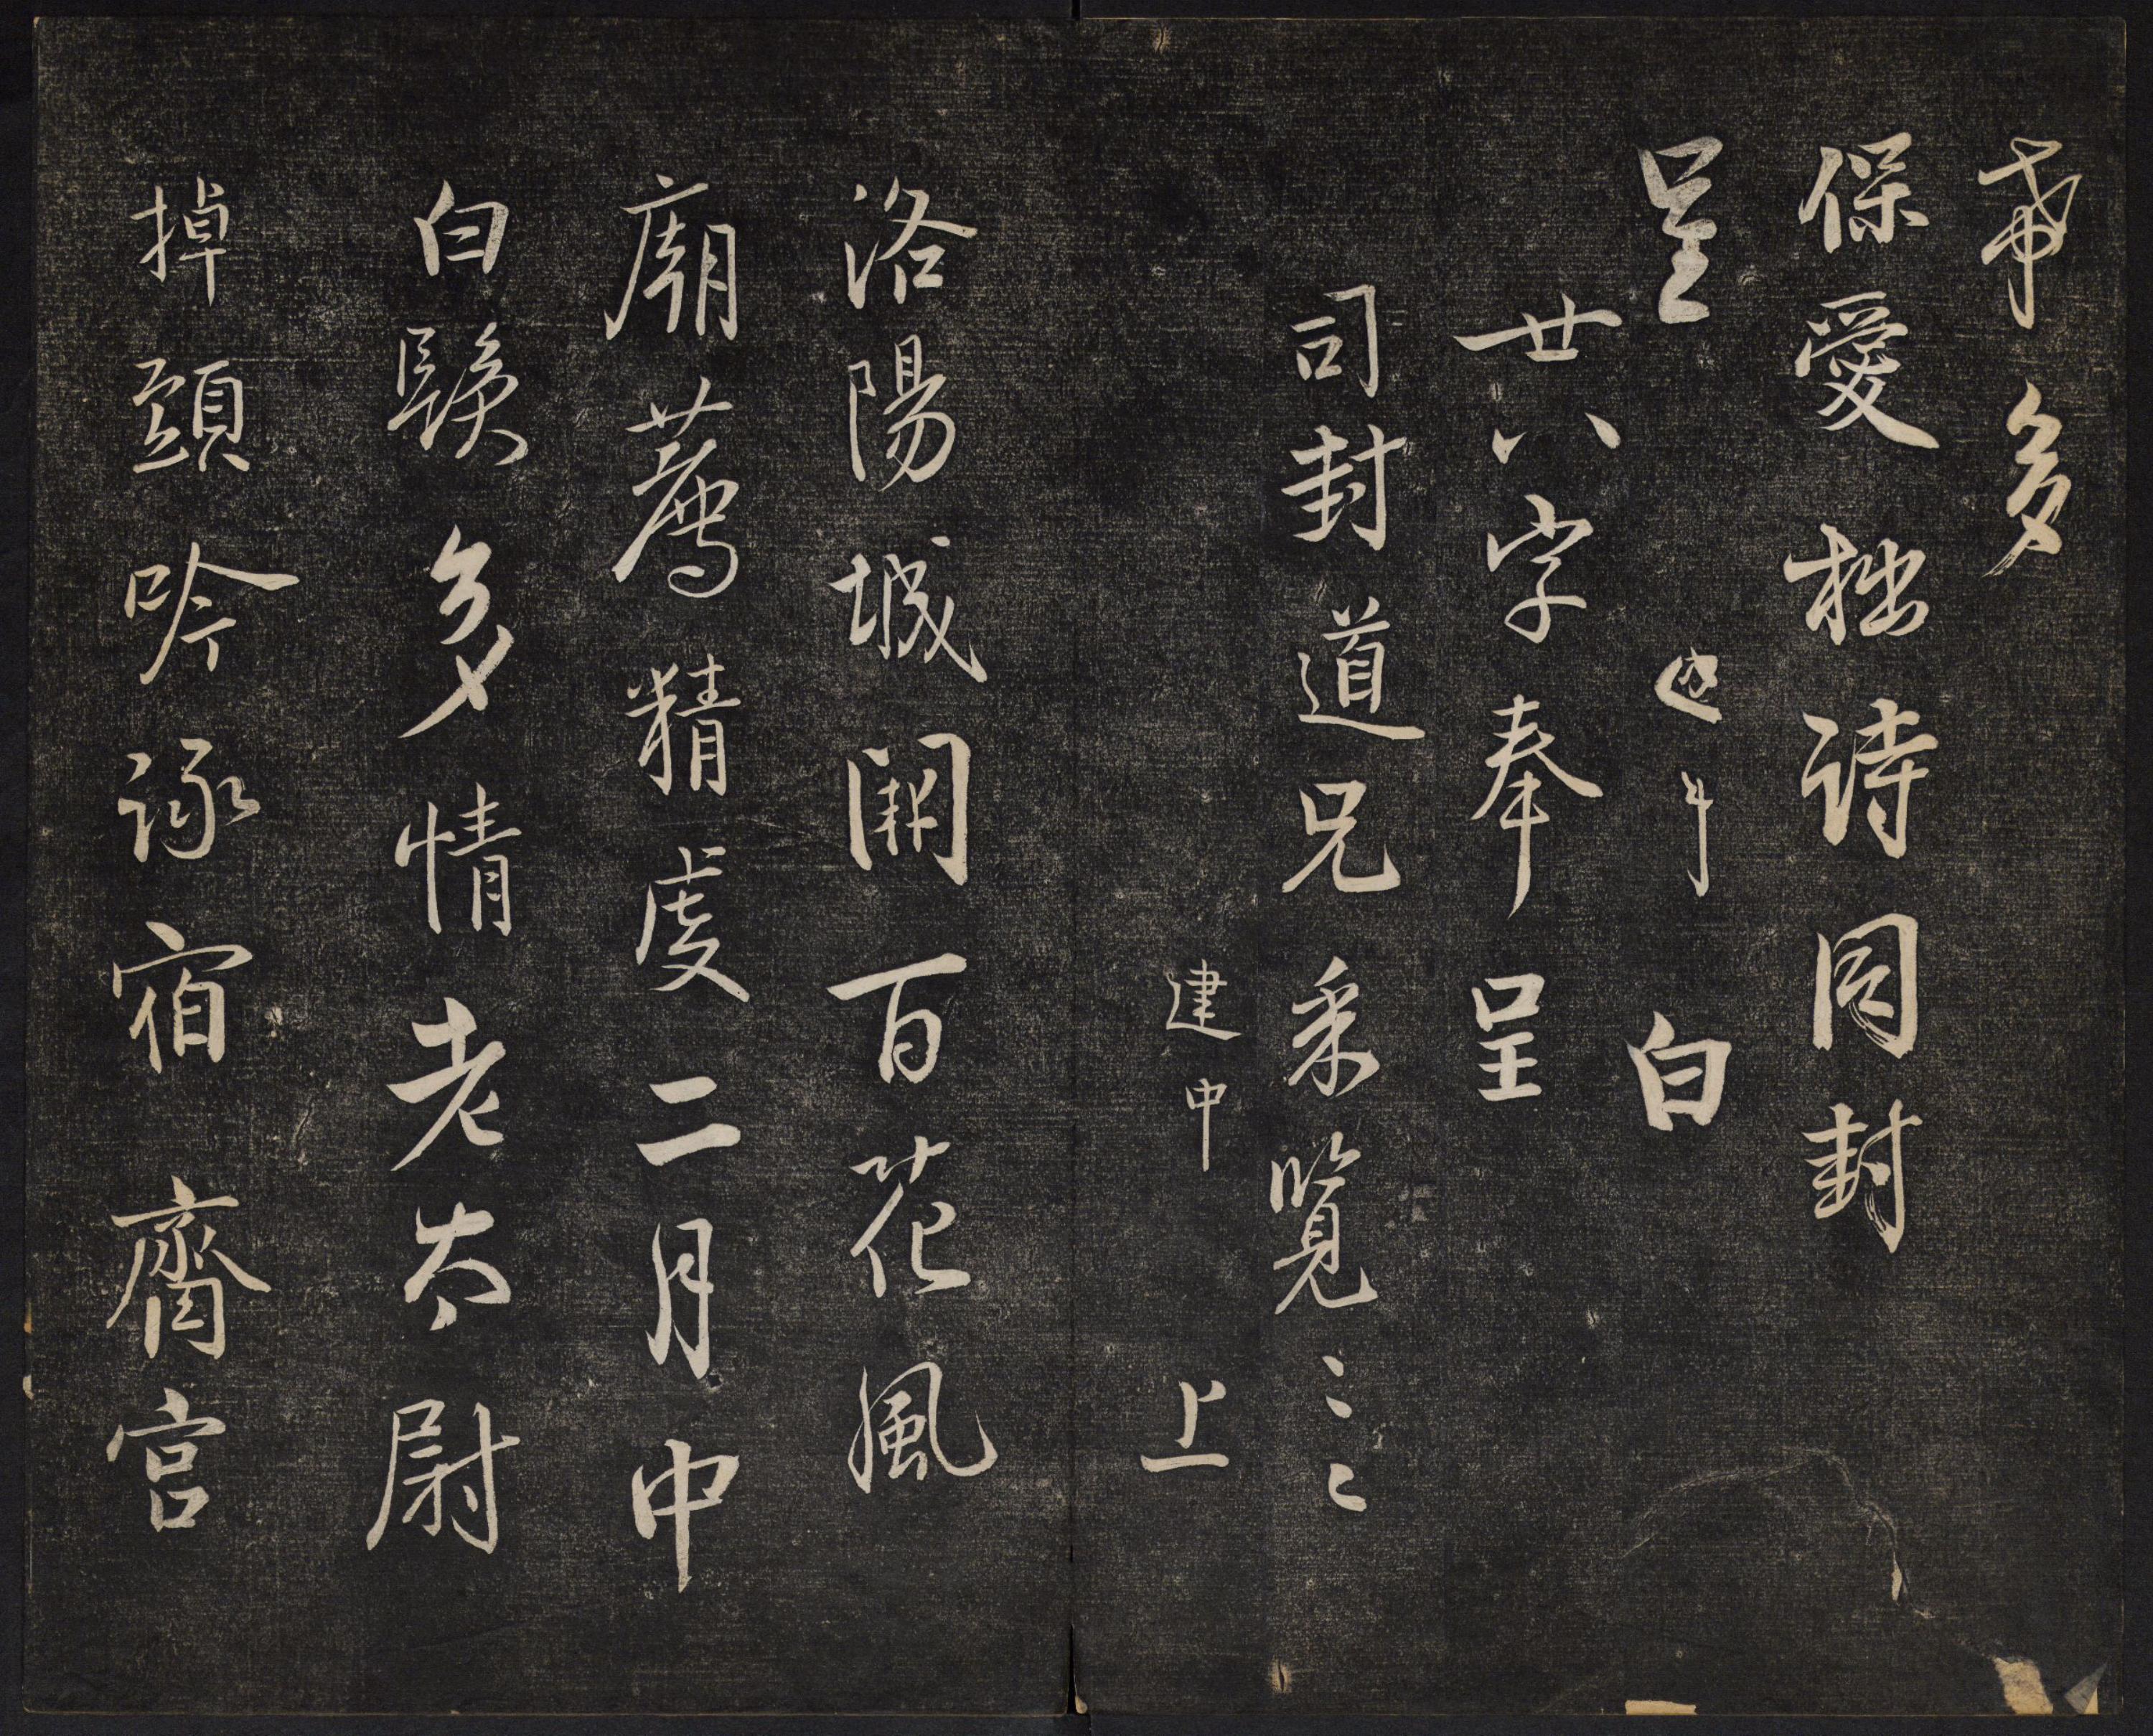 希多
保愛拙詩同封
呈 建中 白
廿八字奉呈
司封道兄采覽〻〻
建中 上
洛陽城闕百花風
廟薦精虔二月中
白鬚多情老太尉
掉頭吟諑宿齋宮